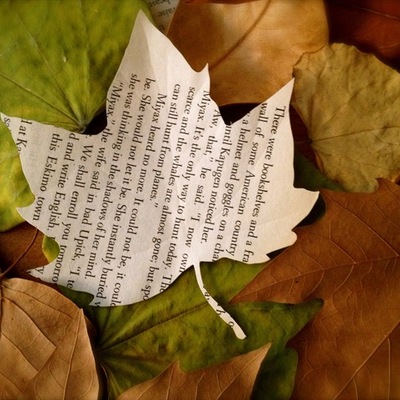 There were bookshelves and a fra
wall of some American country
a helmet and goggles on a cha
until Kapugen noticed her.
that," he said. "I now ow
Miyax. It's the only way to hunt today. Th
scarce and the whales are almost gone; but spo
can still hunt from planes."
Miyax heard no more. It could not be, it could
be. She would not let it be. She instantly buried w
she was thinking in the shadows of her mind
"Miyax," the wife said in bad Upick, "I t
We shall enroll you tomorrow
d and write English.
this Eskimo town
l at K